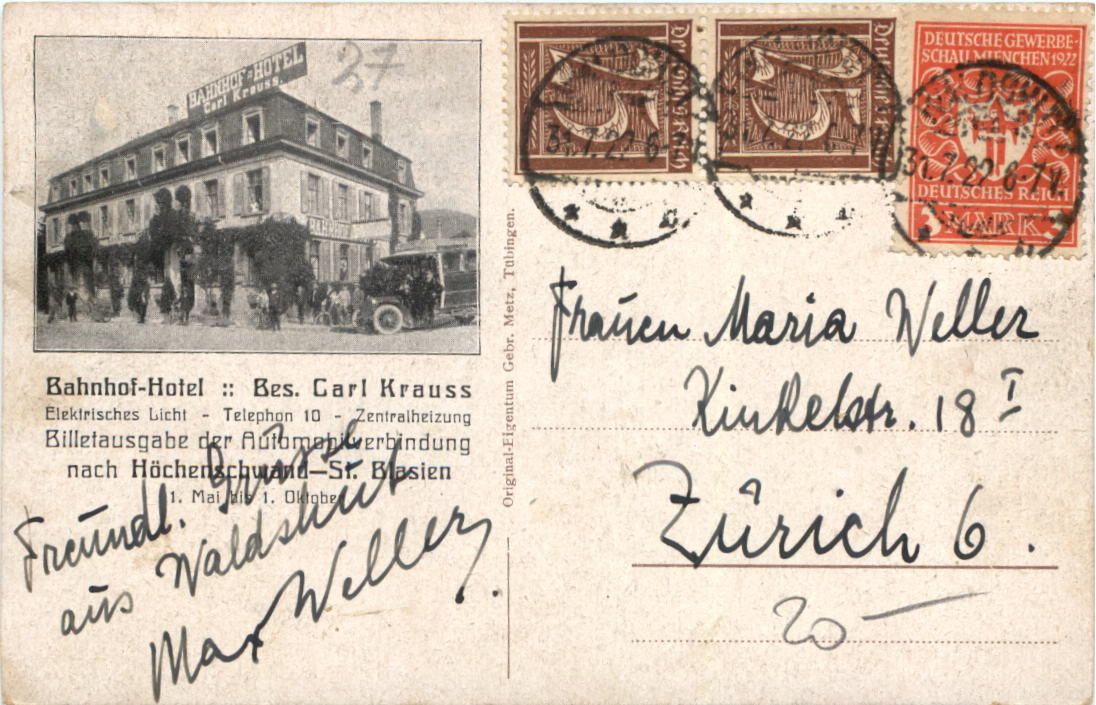 BAHNHOF-HOTEL
Carl Krauss
27
Bahnhof-Hotel :: Bes. Carl Krauss
Elektrisches Licht - Telephon 10 - Zentralheizung
Billetausgabe der Automobilverbindung
nach Höchenschwand—St. Blasien
1. Mai bis 1. Oktober
Freundl. Grüsse
aus Waldshut
Max Weller.
Original-Eigentum Gebr. Metz, Tübingen.
75
75
DEUTSCHE GEWERBE-
SCHAU MUENCHEN 1922
DEUTSCHES REICH
3 MARK 3
31.7.22.6-7
31.7.22.6-7
31.7.22.6-7
Frauen Maria Weller
Kinkelstr. 18 I
Zürich 6.
20 —